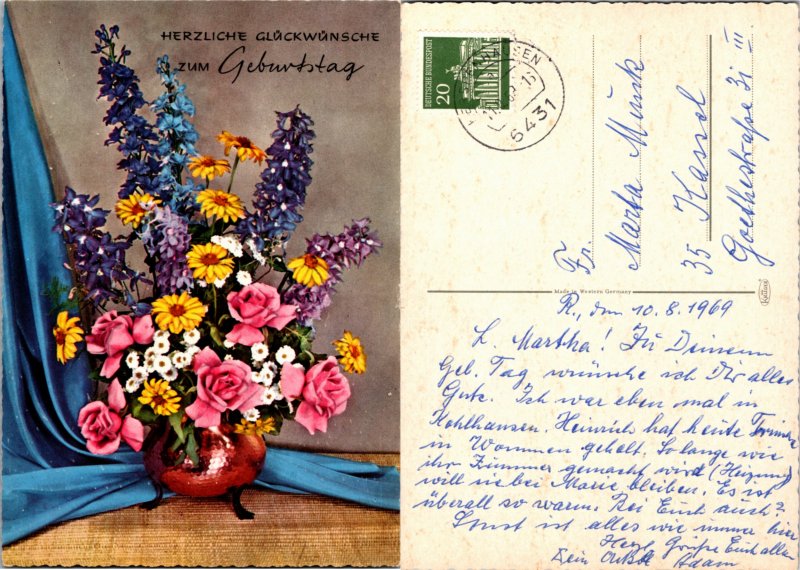 HERZLICHE GLÜCKWÜNSCHE
ZUM Geburtstag
DEUTSCHE BUNDESPOST
20
6431
Fr.
Marta Munk
35 Kassel
Goethestraße 31 III
Made in Western Germany
R., den 10.8.1969
L. Martha! Zu Deinem
Geb. Tag wünsche ich Dir alles
Gute. Ich war eben mal in
Kohlhausen. Heinrich hat heute
in geholt. So lange wie
ihr Zimmer gemacht wird (Heizung)
will sie bei Marie bleiben. Es ist
überall so warm. Bei Euch auch?
Sonst ist alles wie immer hier
Herzl. Grüße Euch allen
Dein Adam